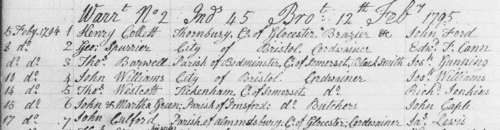 Warrt. No 2 Ind 45 Brot. 12th Feby 1795
5 Feby. 1794 1 Henry Collett Thornbury, Co. of Glocester Brazier & John Ford
8 do. 2 Geo. Spurrier City of Bristol, Cordwainer Edwd. J. Cann
do. do. 3 Thos. Barwell Parish of Bedminster, Co. of Somerset, Black Smith Jos. Gunning
10 do. 4 John Williams City of Bristol Cordwainer Jos. Williams
14 do. 5 Thos. Westcott Tickenham, Co. of Somerset, do. Richd. Jenkins
16 do. 6 John & Martha Green; Parish of do. Butchers John Cap
17 do. 7 John Culford Parish of Almondsbury, Co. of Glocester; Cordwainer Jas. Lewis